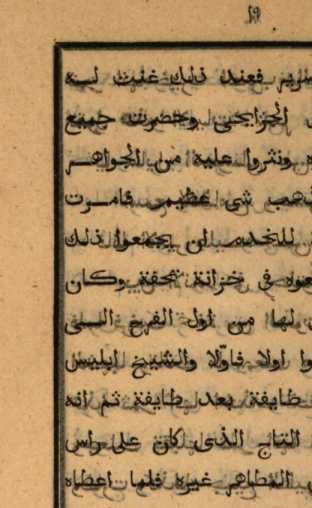 ١٩
فعند ذلك غنت له
وحضرت جميع
ونثروا عليه من الجواهر
شى عظيم فامرت
للخدم ان يجمعوا ذلك
فى خزانة تحفة وكان
لها من اول الفرح الى
اولا فاولا والشيخ ابليس
طايفة بعد طايفة ثم انه
التاج الذى كان على راس
غيره فلما اعطاه